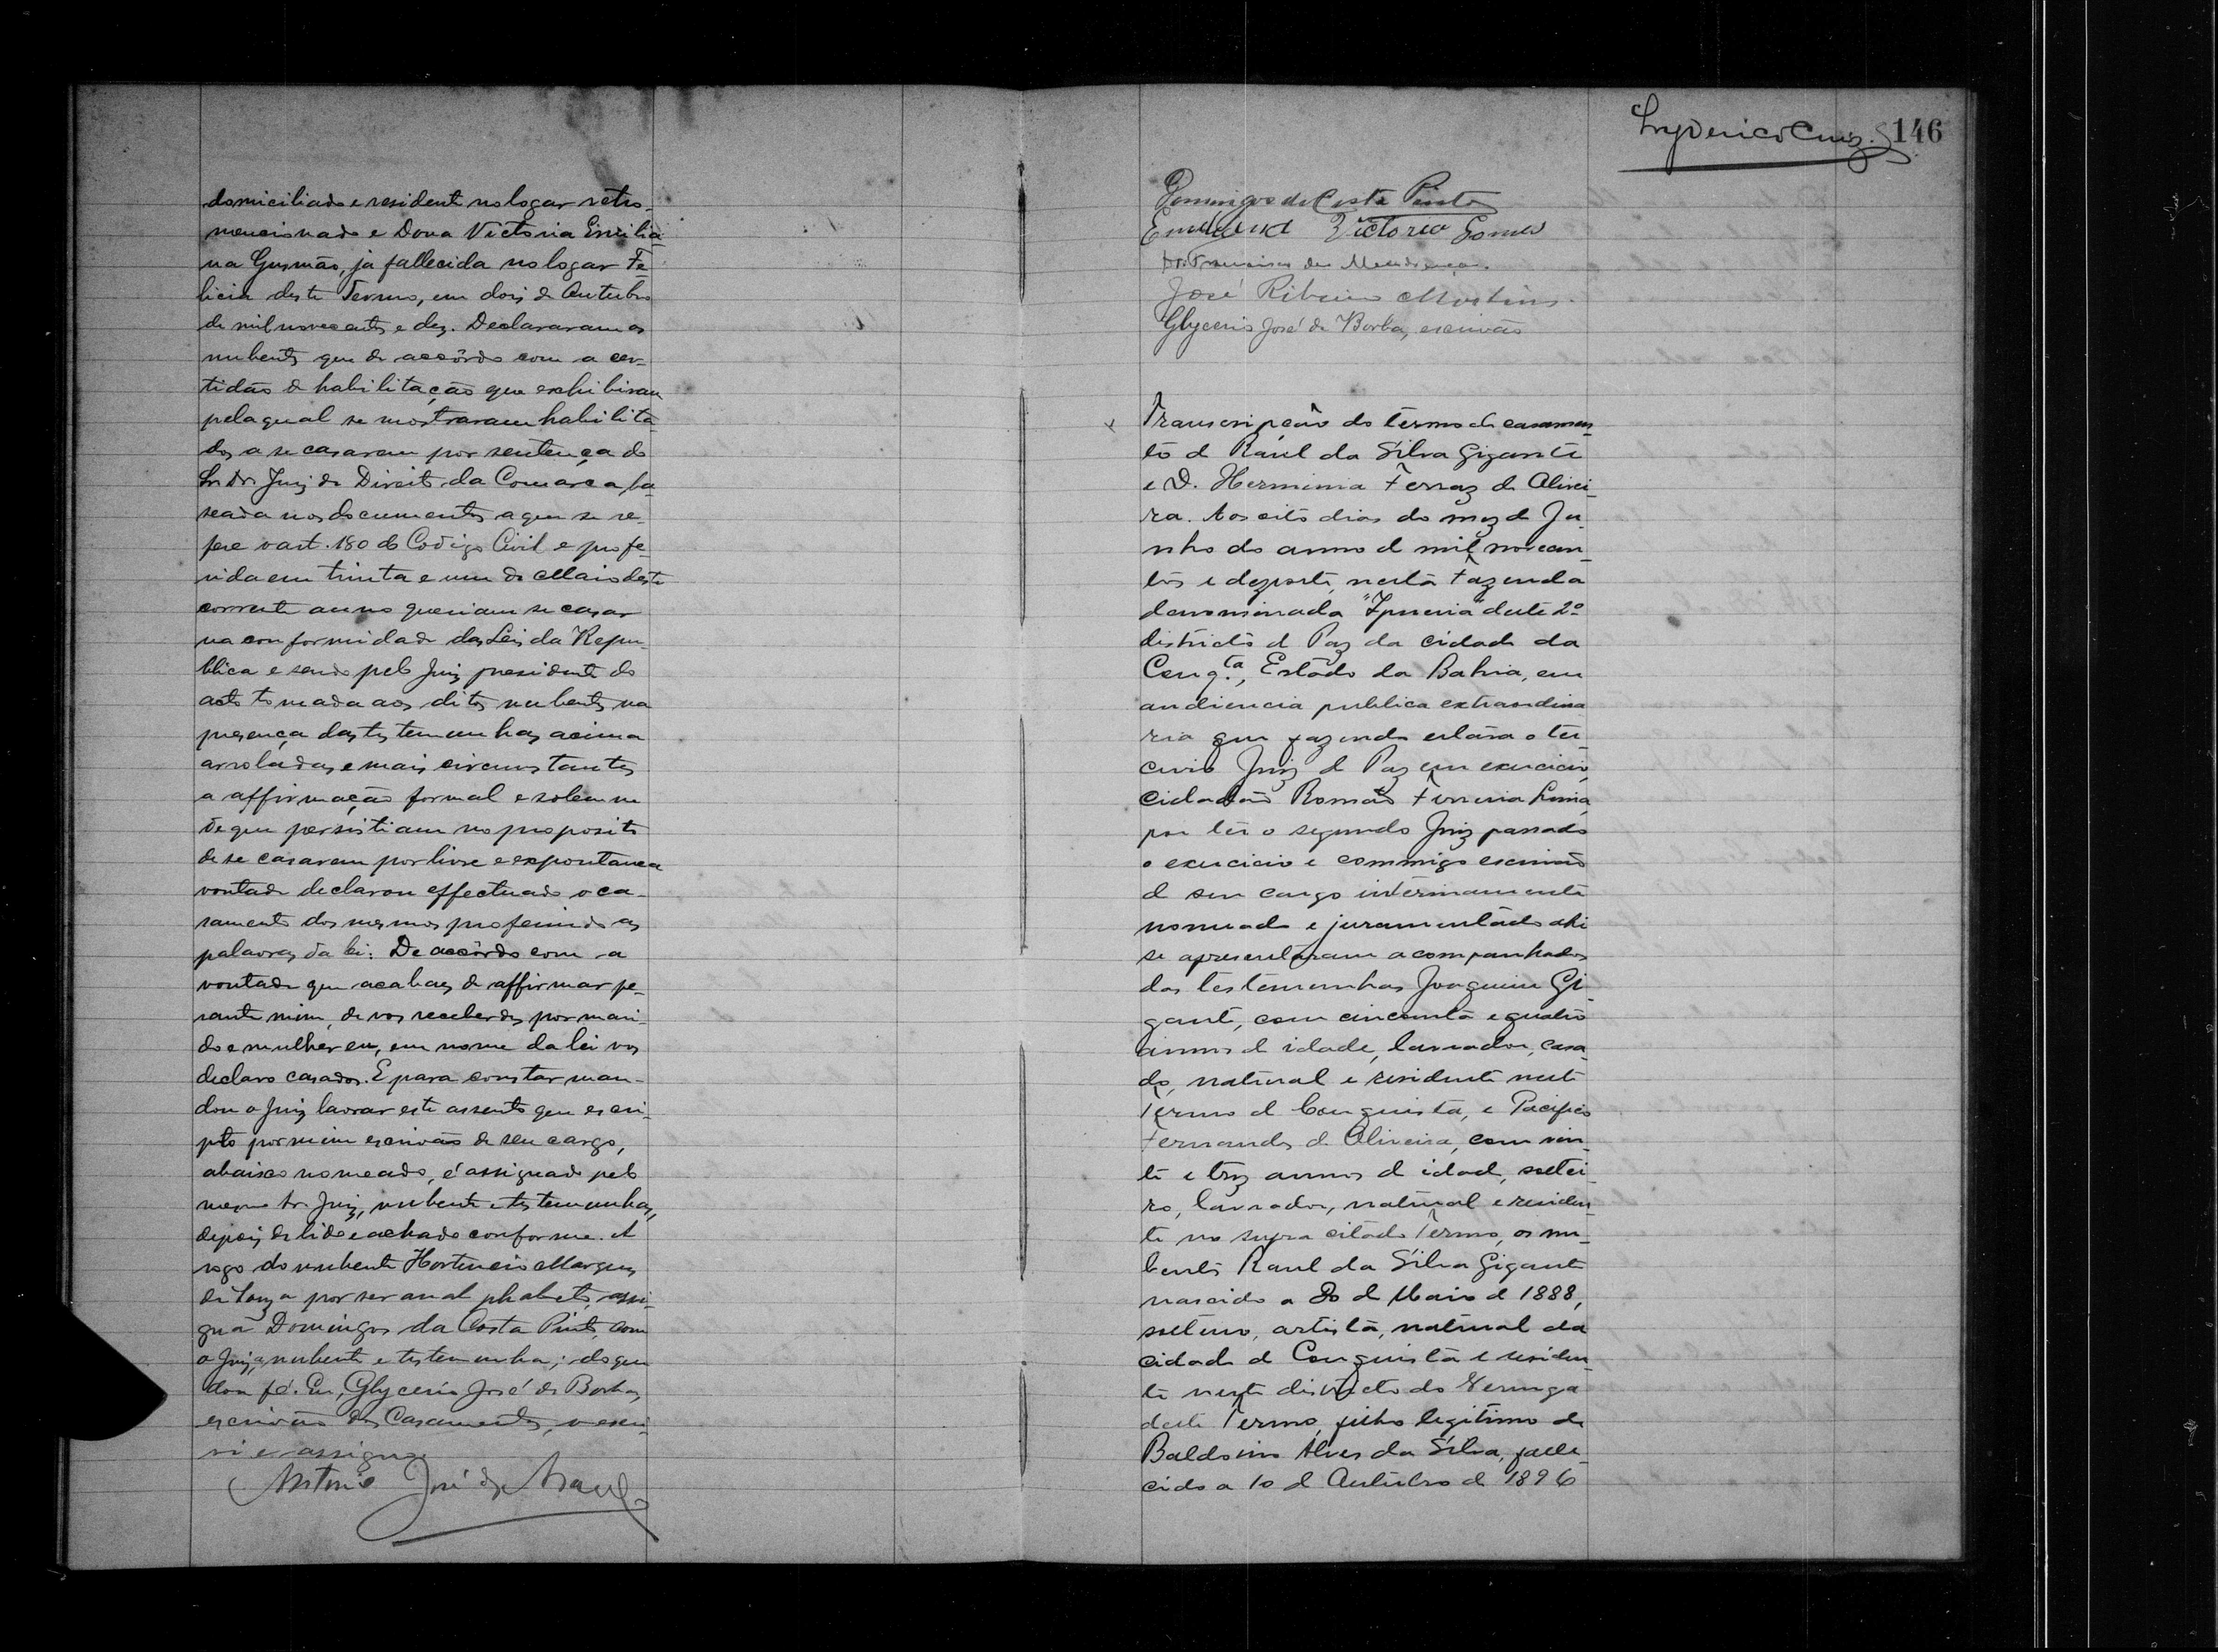 domiciliado e residente no logar retro-
mencionado e Dona Victoria Emilia-
na Gusmão, já fallecida no logar Fe-
licia deste Termo, em dois de Outubro
de mil novecentos e dez. Declararam os
nubentes que de accôrdo com a cer-
tidão de habilitação que exhibiram
pela qual se mostraram habilita-
dos a se casarem por sentença do
Sr. Dr. Juiz de Direito da Comarca, ba-
seada nos documentos a que se re-
fere o art. 180 do Codigo Civil e profe-
rida em trinta e um de Maio deste
corrente anno queriam se casar
na conformidade das Leis da Repu-
blica e sendo pelo Juiz presidente do
acto tomada aos ditos nubentes na
presença das testemunhas acima
arroladas e mais circumstantes
a affirmação formal e solemne
de que persistiam no proposito
de se casarem por livre e expontanea
vontade declarou effectuado o ca-
samento dos mesmos proferindo as
palavras da lei: De accôrdo com a
vontade que acabaes de affirmar pe-
rante mim, de vos receberdes por mari-
do e mulher eu, em nome da lei vos
declaro casados. E para constar man-
dou o Juiz lavrar este assento que escri-
pto por mim escrivão de seu cargo,
abaixo nomeado, é assignado pelo
mesmo Sr. Juiz, nubente e testemunhas,
depois de lido e achado conforme. A
rogo do nubente Hortencio Marques
de Souza por ser analphabeto, assi-
gna Domingos da Costa Pinto, com
o Juiz, a nubente e testemunha; do que
dou fé. Eu, Glycerio José de Borba,
escrivão dos Casamentos, o escre-
vi e assigno.
Antonio José de Araujo
146
Domingos da Costa Pinto
Victoria Gomes
José Ribeiro Martins.
Glycerio José de Borba, escrivão
Transcripção do termo de casamen-
to de Raul da Silva Gigante
e D. Herminia Ferraz de Olivei-
ra. Aos oito dias do mez de Ju-
nho do anno de mil novecen-
tos e dezesete, nesta Fazenda
denominada deste 2º
districto de Paz da cidade da
Conq.ta, Estado da Bahia, em
audiencia publica extraordina
ria que fazendo estava o ter-
ceiro Juiz de Paz em exercicio,
cidadão Romão Ferreira Lima,
por ter o segundo Juiz passado
o exercicio e commigo escrivão
de seu cargo interinamente
nomeado e juramentado ahi
se apresentaram acompanhados
das testemunhas Joaquim Gi-
gante, com cincoenta e quatro
annos de idade, lavrador, casa-
do, natural e residente neste
Termo de Conquista, e Pacifico
Fernandes de Oliveira, com vin-
te e trez annos de idade, soltei-
ro, lavrador, natural e residen-
te no supra citado Termo, os nu-
bentes Raul da Silva Gigante
nascido a 20 de Maio de 1888,
solteiro, artista, natural da
cidade de Conquista e residen-
te neste districto do Veruga
deste Termo, filho legitimo de
Baldoino Alves da Silva, falle-
cido a 10 de Outubro de 1896